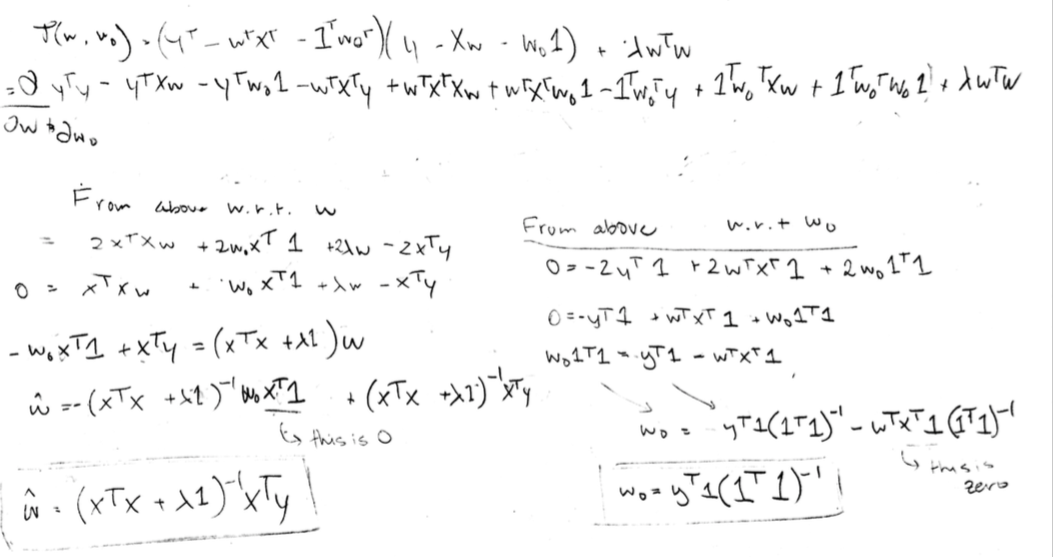 J(w, w₀) = (yᵀ - wᵀxᵀ - 1ᵀw₀ᵀ)(y - Xw - w₀1) + λwᵀw
= ∂ yᵀy - yᵀXw - yᵀw₀1 - wᵀXᵀy + wᵀXᵀXw + wᵀXᵀw₀1 - 1ᵀw₀ᵀy + 1ᵀw₀ᵀXw + 1ᵀw₀ᵀw₀1 + λwᵀw
∂w & ∂w₀
From above w.r.t. w
= 2xᵀxw + 2w₀xᵀ1 + 2λw - 2xᵀy
0 = xᵀxw + w₀xᵀ1 + λw - xᵀy
-w₀xᵀ1 + xᵀy = (xᵀx + λ1)w
ŵ = -(xᵀx + λ1)⁻¹w₀xᵀ1 + (xᵀx + λ1)⁻¹xᵀy
↳ this is 0
ŵ = (xᵀx + λ1)⁻¹xᵀy
From above w.r.t w₀
0 = -2yᵀ1 + 2wᵀxᵀ1 + 2w₀1ᵀ1
0 = -yᵀ1 + wᵀxᵀ1 + w₀1ᵀ1
w₀1ᵀ1 = yᵀ1 - wᵀxᵀ1
w₀ = yᵀ1(1ᵀ1)⁻¹ - wᵀxᵀ1(1ᵀ1)⁻¹
↳ this is
zero
w₀ = yᵀ1(1ᵀ1)⁻¹